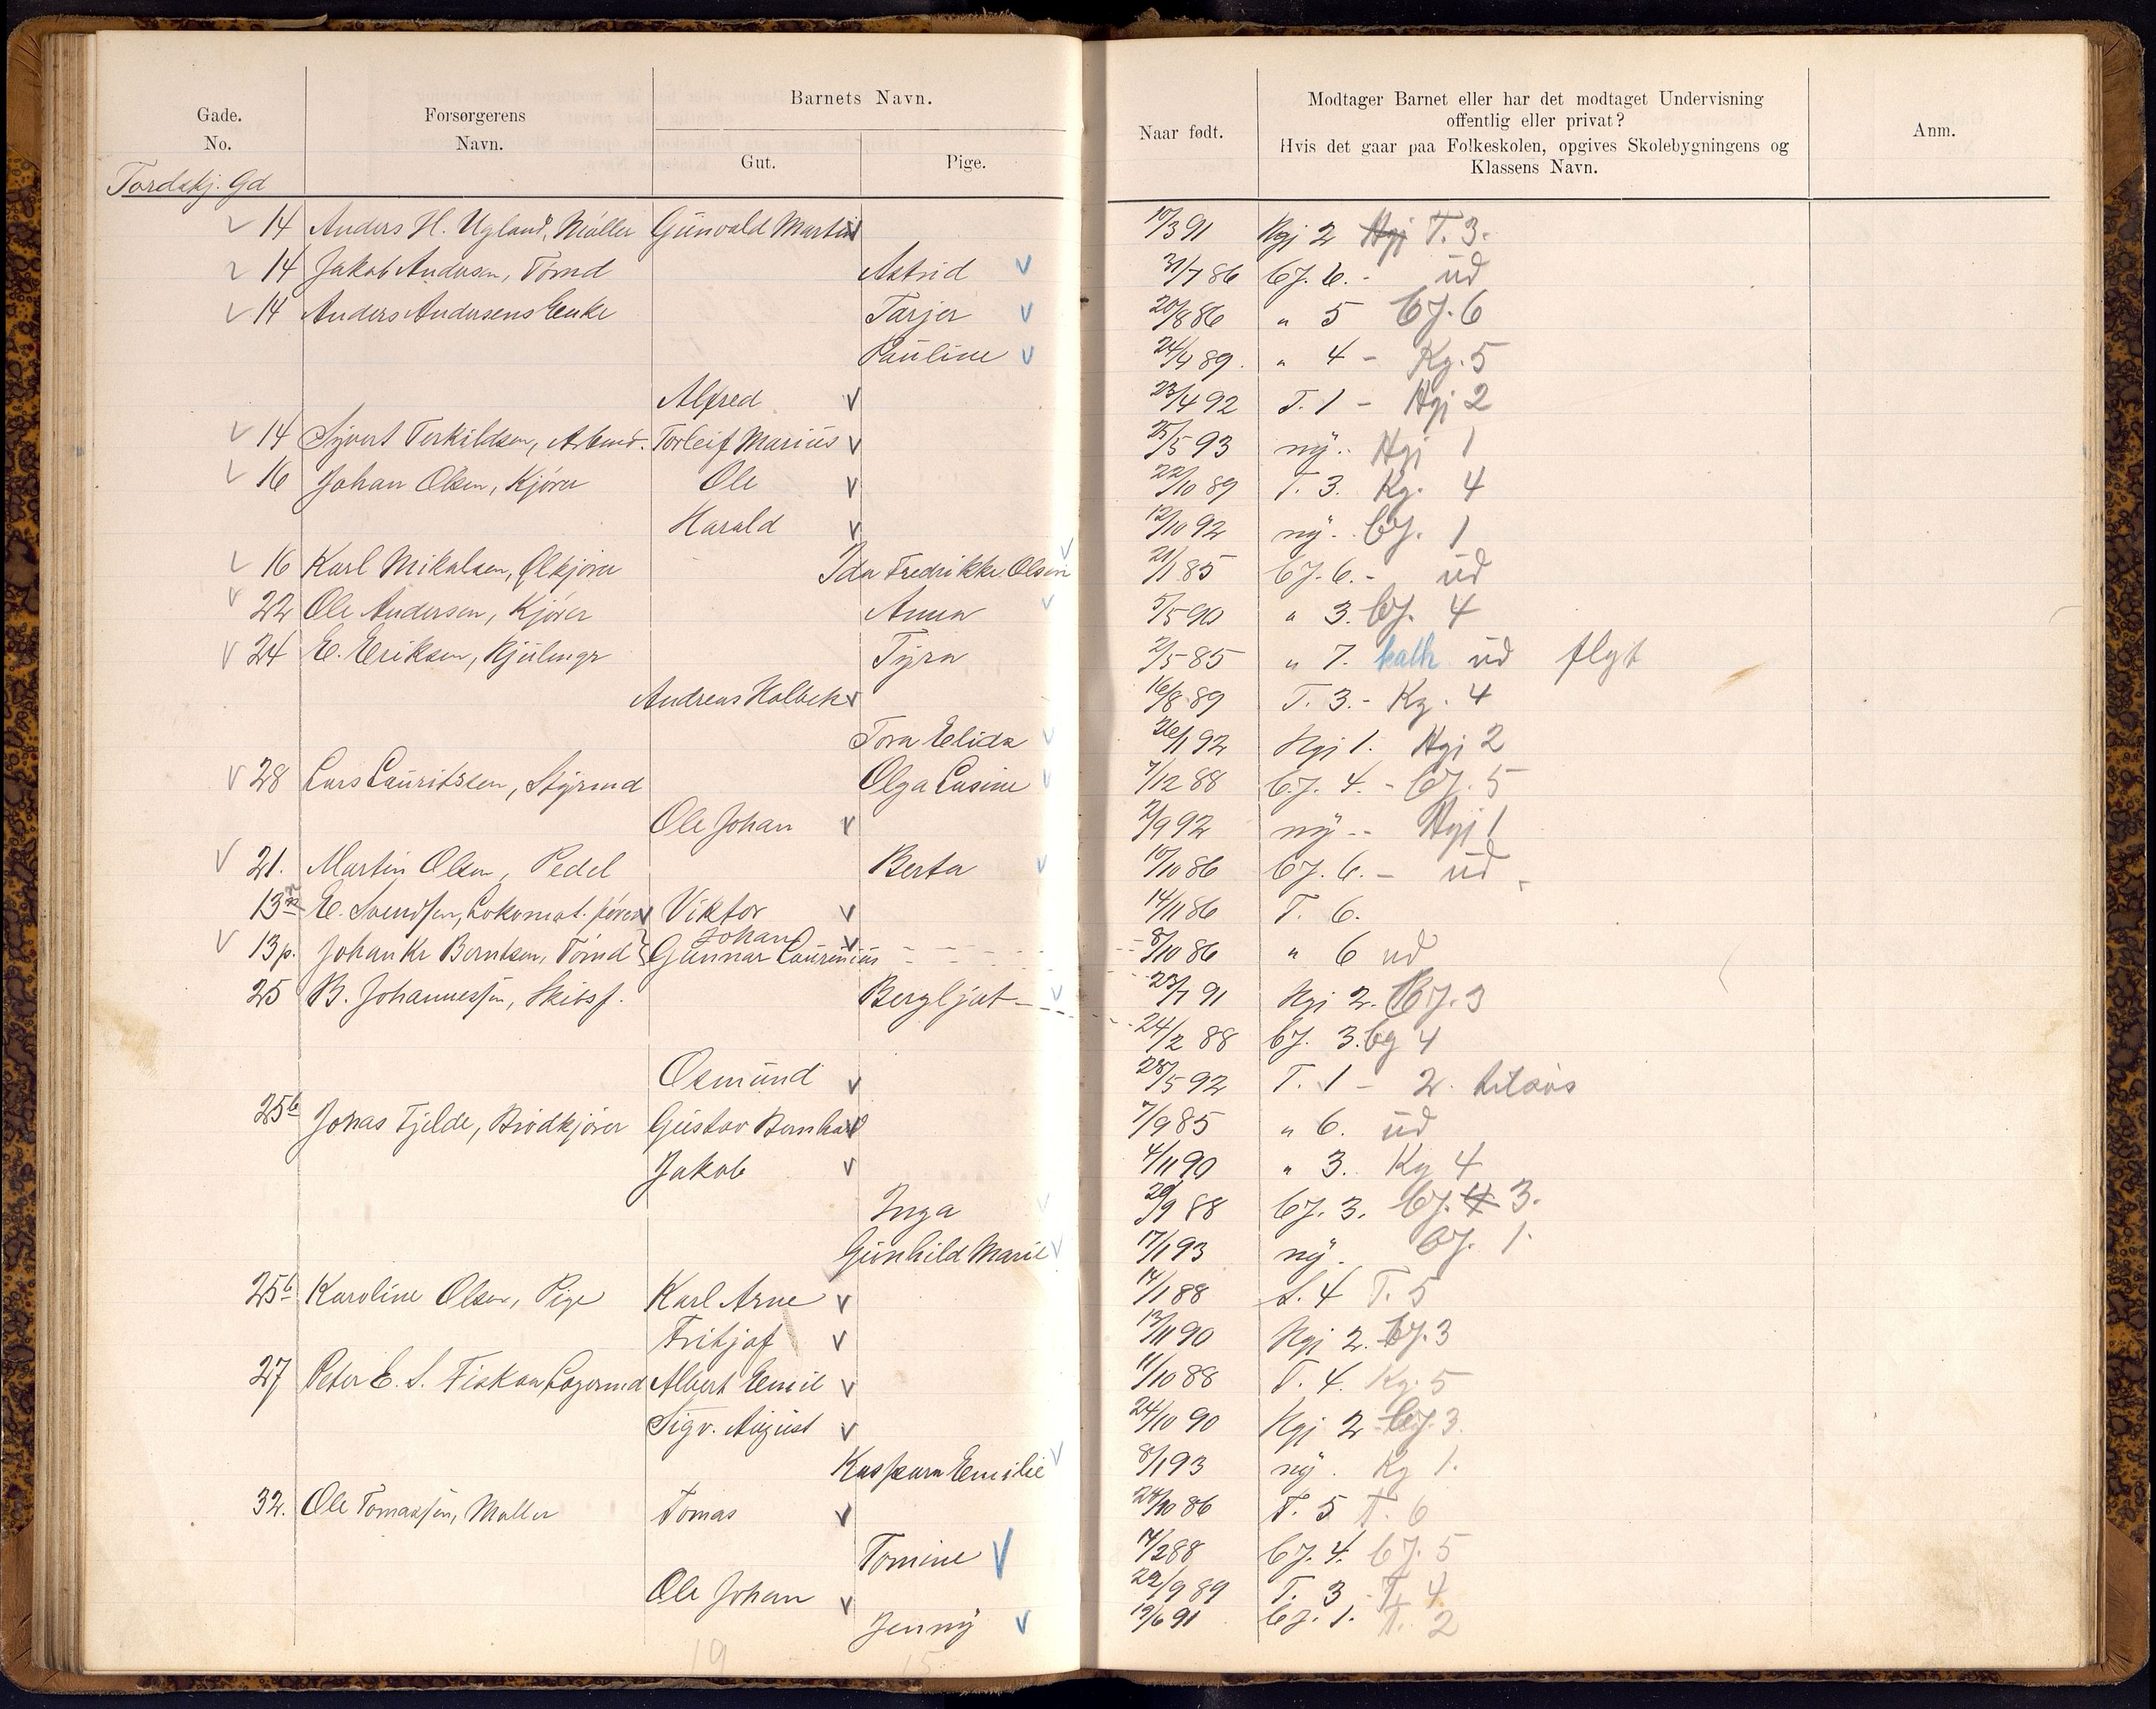 Gade.
No.
Forsørgerens
Navn.
Barnets Navn.
Gut.
Pige.
Naar født.
Modtager Barnet eller har det modtaget Undervisning
offentlig eller privat?
Hvis det gaar paa Folkeskolen, opgives Skolebygningens og
Klassens Navn.
Anm.
Tordskj. Gd
14 Anders H. Ugland, Møller Gunvald Martin 10/3 91 Kgj 2 T. 3.
14 Jakob Andersen, Tømd Astrid 31/7 86 bJ. 6. - ud
14 Anders Andersens Enke Tarjer 20/8 86 " 5 bJ. 6
Pauline 24/4 89. " 4 - Kg. 5
Alfred 23/4 92 T. 1 - Hgj 2
14 Syvert Terkildsen, Arbmd. Torleif Marius 25/5 93 ny. Hgj 1
16 Johan Olsen, Kjører Ole 22/10 89 T. 3. Kg. 4
Harald 12/10 92 ny. bJ. 1
16 Karl Mikalsen, Ølkjører Ida Fredrikke Olsen 21/1 85 bJ. 6. - ud
22 Ole Andersen, Kjører Anna 5/5 90 " 3. bJ. 4
24 E. Eriksen, Tyra 2/5 85 " 7. kath ud flyt
Andreas Holbek 16/8 89 T. 3. - Kg. 4
Tora Elida 26/1 92 Hgj 1. Hgj 2
28 Lars Lauritssen, Styrmd Olga Lusine 7/12 88 bJ. 4. - bJ. 5
Ole Johan 2/9 92 ny - Hgj 1
21. Martin Olsen, Pedel Berta 10/10 86 bJ. 6. - ud
13 E. Svendsen, Lokomot. fører Viktor 14/11 86 T. 6.
13p. Johan Kr Berntsen, Tømd Johan Gunnar Laurinius 8/10 86 " 6 ud
25 B. Johannessen, Skibsf. Bergljot 23/7 91 Hgj 2. bJ. 3
24/2 88 bJ. 3. bg 4
Osmund 28/5 92 T. 1 - 2.
25b Jonas Fjelde, Brødkjører Gustav Bernhard 7/9 85 " 6. ud
Jakob 4/11 90 " 3. Kg 4
Inga 29/9 88 bJ. 3. bJ. 4 3.
Gunhild Marie 17/1 93 ny. bJ. 1.
25b Karoline Olsen, Pige Karl Arne 14/1 88 S. 4 T. 5
Fritjof 13/11 90 Hgj 2. bJ. 3
27 Peter E. S. Fiskaa Lagermd Albert Emil 11/10 88 T. 4. Kg. 5
Sigv. August 24/10 90 Kgj 2 bJ. 3.
Kaspara Emilie 8/1 93 ny. Kg 1.
32. Ole Tomassen, Møller Tomas 24/10 86 T. 5 T. 6
Tomine 14/2 88 bJ. 4. bJ. 5
Ole Johan 22/9 89 T. 3 - T. 4
Jenny 19/6 91 bJ. 1. T. 2
19 15